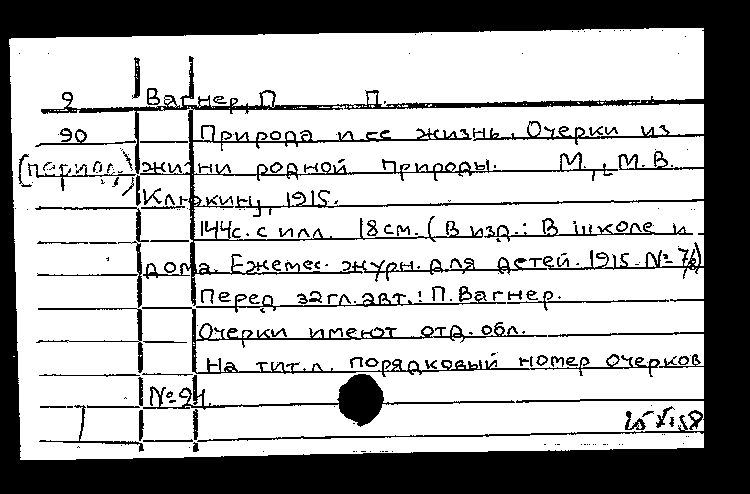 2 Вагнер, П П.
90 Природа и ее жизнь. Очерки из
(период.) жизни родной природы. М., [М.В.
Клюкин], 1915.
144с. с илл. 18см. (В изд.: В школе и
дома. Ежемес. журн. для детей. 1915. №7/8)
Перед загл. авт.: П. Вагнер.
Очерки имеют отд. обл.
На тит. л. порядковый номер очерков
№21.